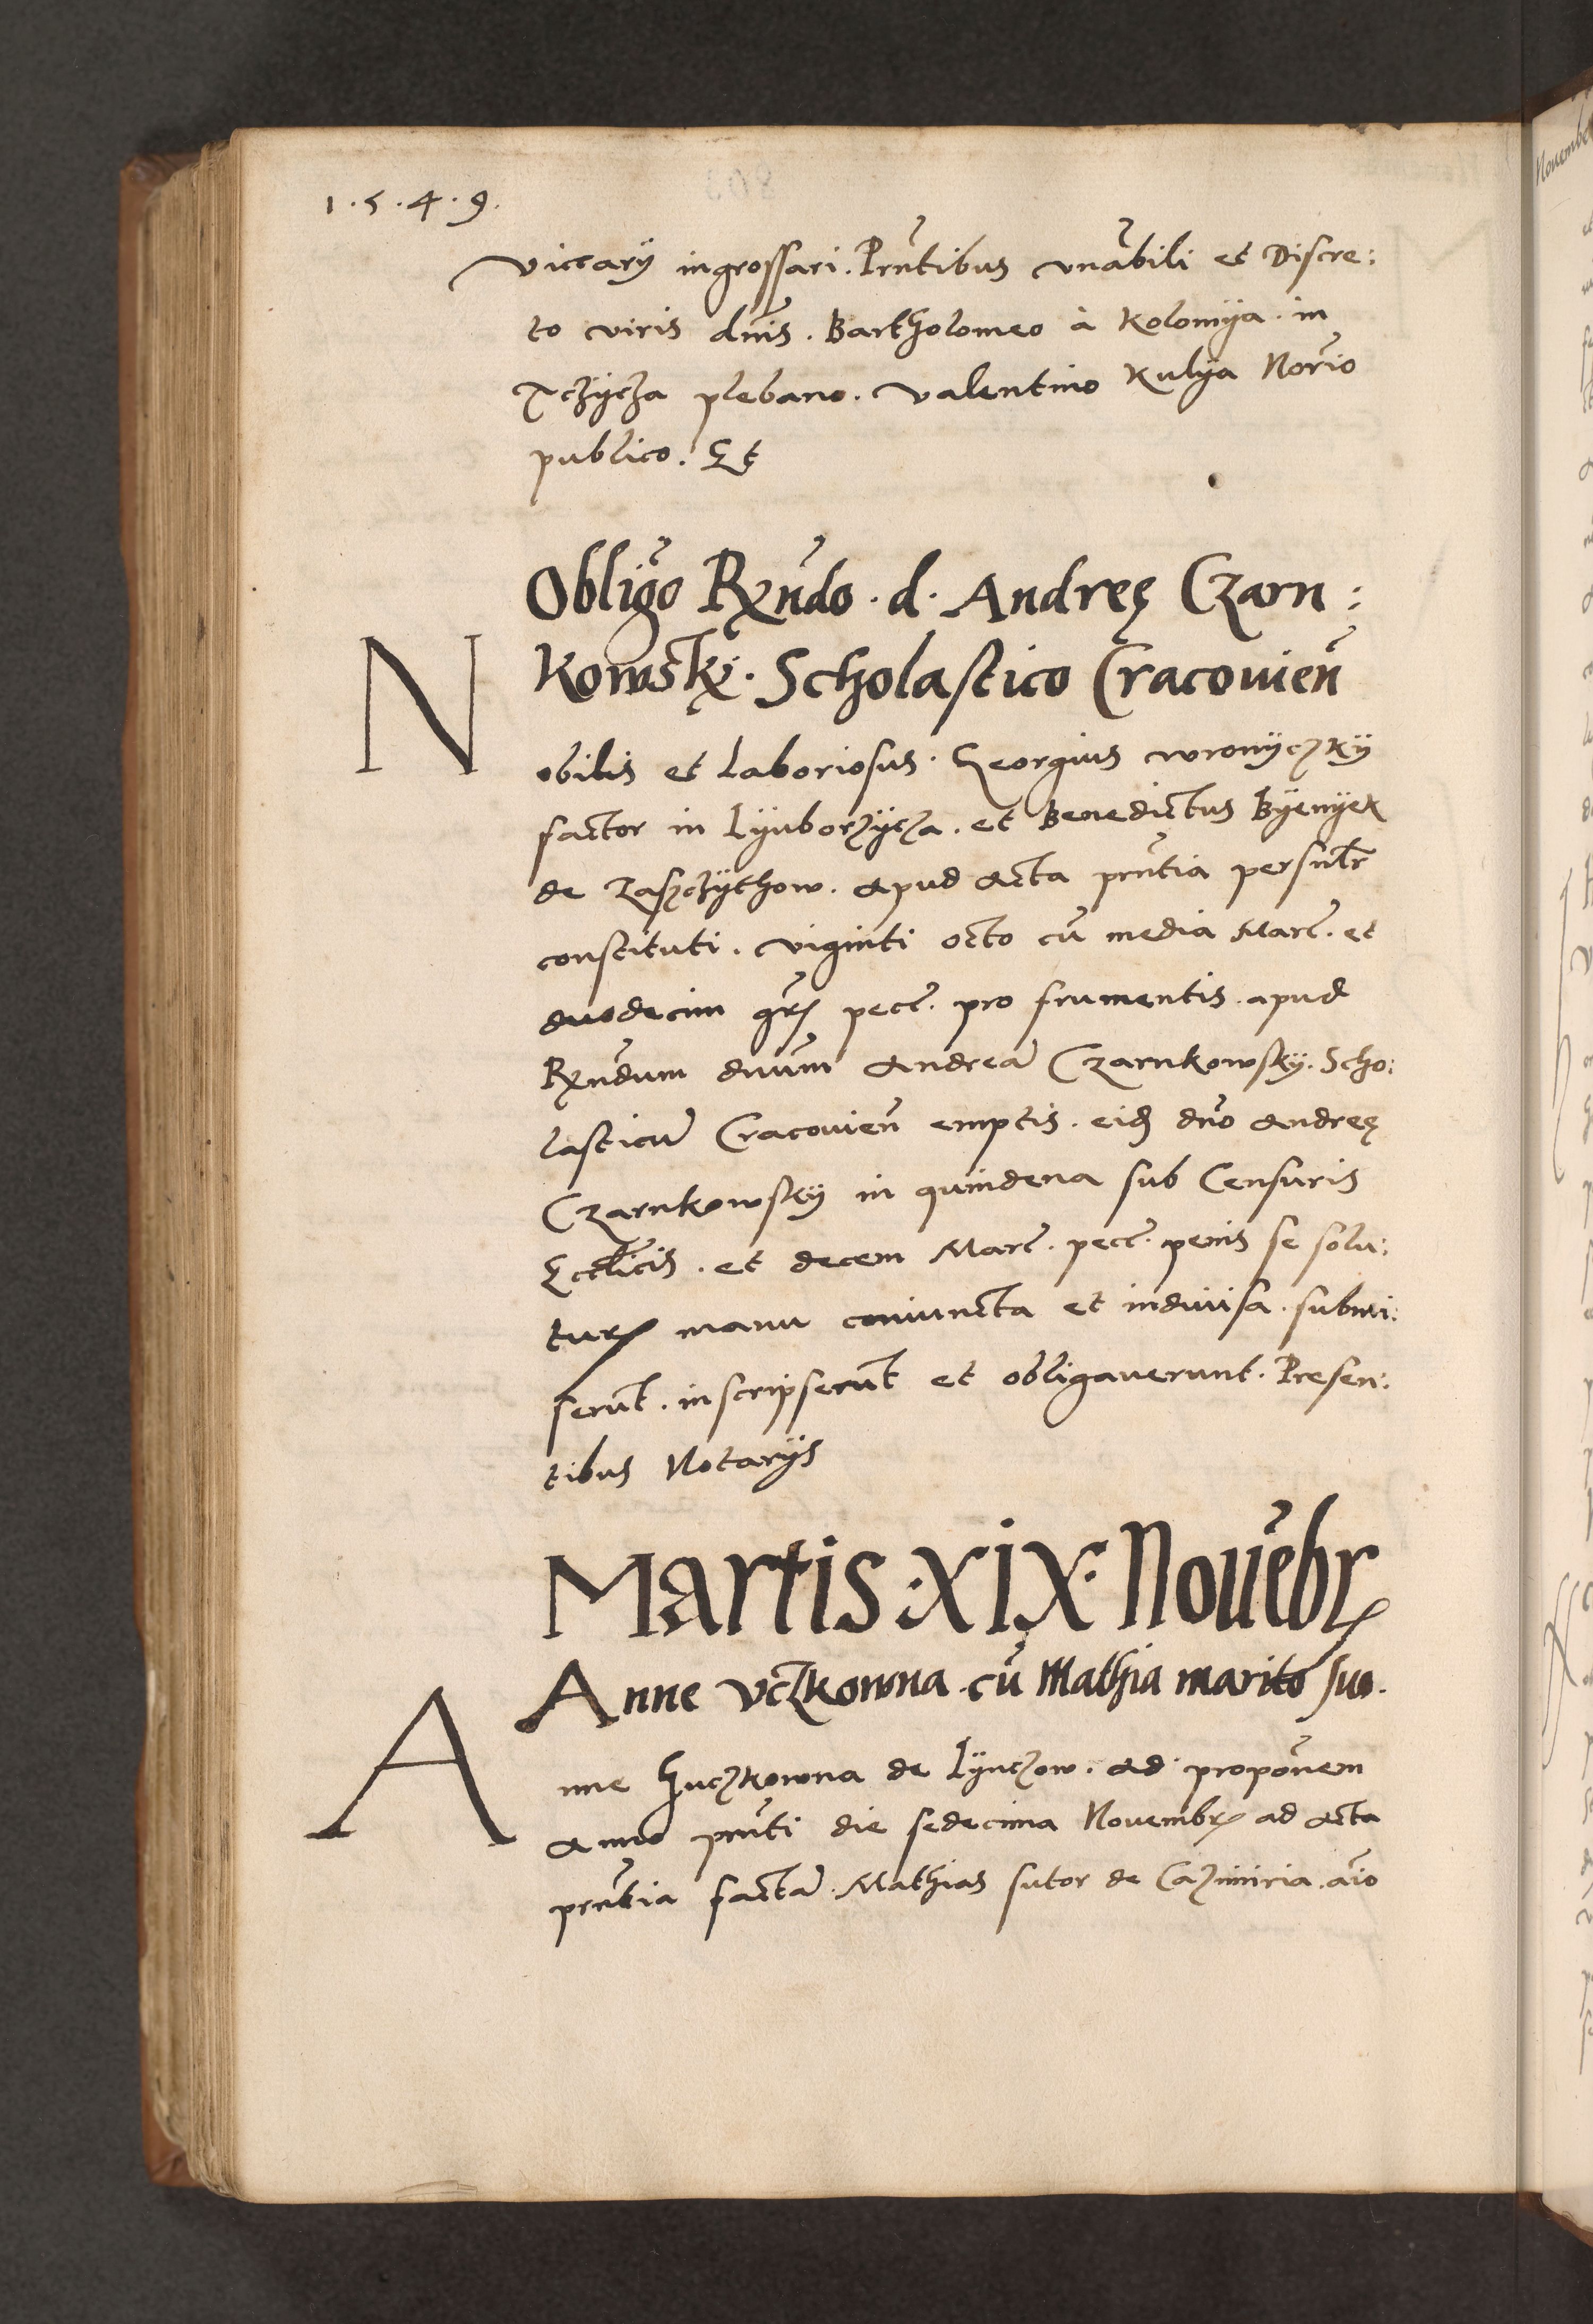 1.5.4.9.
viccarÿ ingrossari. Prñtibus vnãbili et Discre:
to viris dnĩs. Bartholomeo à Kolomÿa. in
Tczÿcza plebano. Valentino Kulÿa Norĩo
publico. Et
Obligõ Rxñdo. d. Andreę Czarn:
Kowskÿ. Scholastico Cracouieñ
Nobilis et Laboriosus. Georgius Wronÿczkÿ
factor in Lÿuborzÿcza. et Benedictus Bÿenÿek
de Zaszczÿthow. apud acta prñtia persnłr
constituti. viginti octo cũ media Marc̃. et
duodecim gr̃ pecc̃. pro frumentis. apud
Rxñdum dnũm Andreã Czarnkowskÿ. Scho:
lasticũ Cracouieñ emptis. eid dnõ Andreę
Czarnkowskÿ in quindena sub Censuris
Eccłicis. et decem Marc̃. pecc̃. penis se solu:
tur manu coniuncta et indiuisa. submi:
serũt. inscripserũt et obligauerunt. Presen:
tibus Notarÿs
Martis .XIX. Nouẽbr
Anne Vczkowna. cũ Mathia marito suo.
Anne Huczkowna de Lÿnczow. ad propõnem
Anno prñti die sedecima Novembr ad acta
prñtia factã. Mathias sutor de Cazimiria. aĩo